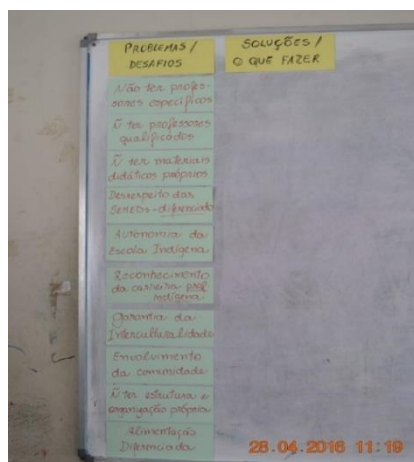 PROBLEMAS /
DESAFIOS
SOLUÇÕES /
O QUE FAZER
Não ter profes-
sores específicos
Ñ ter professores
qualificados
Ñ ter materiais
didáticos próprios
Desrespeito das
SEMEDs - diferenciado
Autonomia da
Escola Indígena
Reconhecimento
da carreira prof.
indígena
Garantia da
Interculturalidade
Envolvimento
da comunidade
Ñ ter estrutura e
organização própria
Alimentação
Diferenciada
28.04.2016 11:19